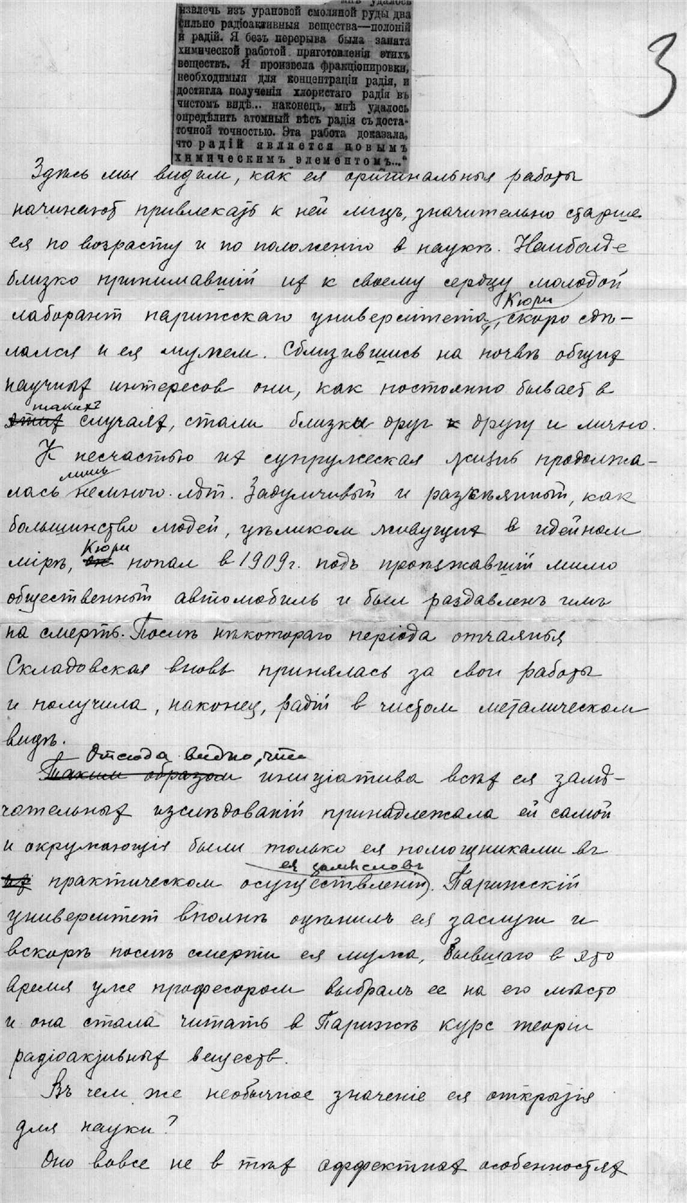 мнѣ удалось
извлечь изъ урановой смоляной руды два
сильно радіоактивныя вещества—полоній
и радій. Я безъ перерыва была занята
химической работой приготовленія этихъ
веществъ. Я произвела фракціонировки,
необходимыя для концентраціи радія, и
достигла полученія хлористаго радія въ
чистомъ видѣ... наконецъ, мнѣ удалось
опредѣлить атомный вѣсъ радія съ доста-
точной точностью. Эта работа доказала,
что радій является новымъ
химическимъ элементомъ..."
3
Здѣсь мы видим, как ея оригинальныя работы
начинают привлекать к ней лиц, значительно старше
ея по возрасту и по положенію в наукѣ. Наиболѣе
близко принимавшій их к своему сердцу молодой
Кюри
лаборант парижскаго университета, скоро сдѣ-
лался и ея мужем. Сблизившись на почвѣ общих
научных интересов они, как постоянно бывает в
таких
этих случаях, стали близки друг к другу и лично.
К несчастью их супружеская жизнь продолжа-
лишь
лась немного лѣт. Задумчивый и разсѣянный, как
большинство людей, цѣликом живущих в идейном
Кюри
мірѣ, он попал в 1909 г. подъ проѣзжавшій мимо
общественный автомобиль и был раздавленъ имъ
на смерть. Послѣ нѣкотораго періода отчаянья
Складовская вновь принялась за свои работы
и получила, наконец, радій в чистом металическом
видѣ.
Отсюда видно, что
Таким образом иниціатива всѣх ея замѣ-
чательных изслѣдованій принадлежала ей самой
и окружающія были только ея помощниками въ
ея замысловъ
практическом осуществленіи. Парижскій
университет вполнѣ оцѣнилъ ея заслуги и
вскорѣ послѣ смерти ея мужа, бывшаго в это
время уже професором выбралъ ее на его мѣсто
и она стала читать в Парижѣ курс теоріи
радіоактивных веществ.
Въ чем же необычное значеніе ея открытія
для науки?
Оно вовсе не в тѣх эффектных особенностях